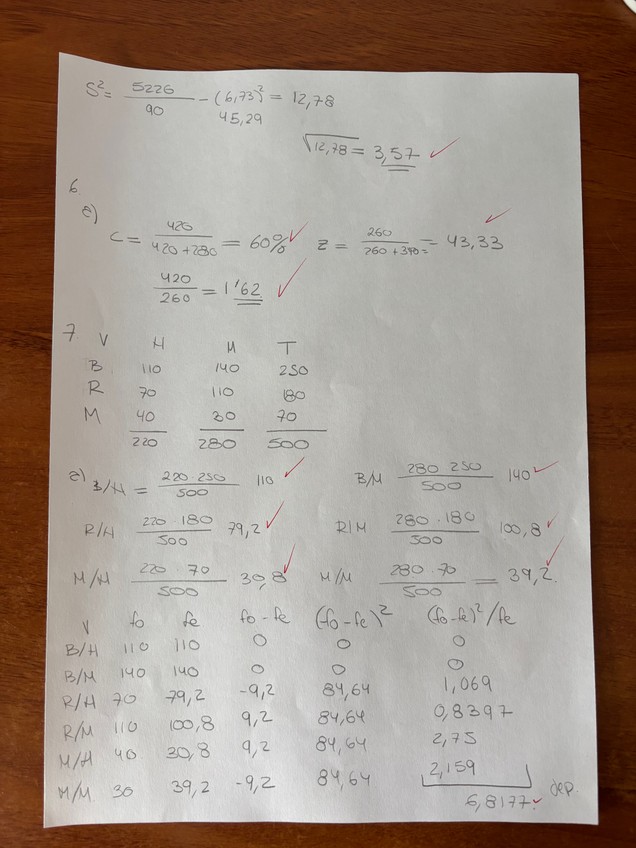 S² = 5226 / 90 - (6,73)² = 12,78
45,29
√12,78 = 3,57 ✓
6.
e) C = 420 / 420+280 = 60% ✓ z = 260 / 260+340 = 43,33 ✓
420 / 260 = 1'62 ✓
7 V H M T
B 110 140 250
R 70 110 180
M 40 30 70
220 280 500
a) B/H = 220·250 / 500 110 ✓ B/M 280 250 / 500 140 ✓
R/H 220·180 / 500 79,2 ✓ R/M 280·180 / 500 100,8 ✓
M/H 220·70 / 500 30,8 ✓ M/M 280·70 / 500 = 39,2. ✓
V fo fe fo-fe (fo-fe)² (fo-fe)²/fe
B/H 110 110 0 0 0
B/M 140 140 0 0 0
R/H 70 79,2 -9,2 84,64 1,069
R/M 110 100,8 9,2 84,64 0,8397
M/H 40 30,8 9,2 84,64 2,75
M/M 30 39,2 -9,2 84,64 2,159
6,8177 ✓ dep.